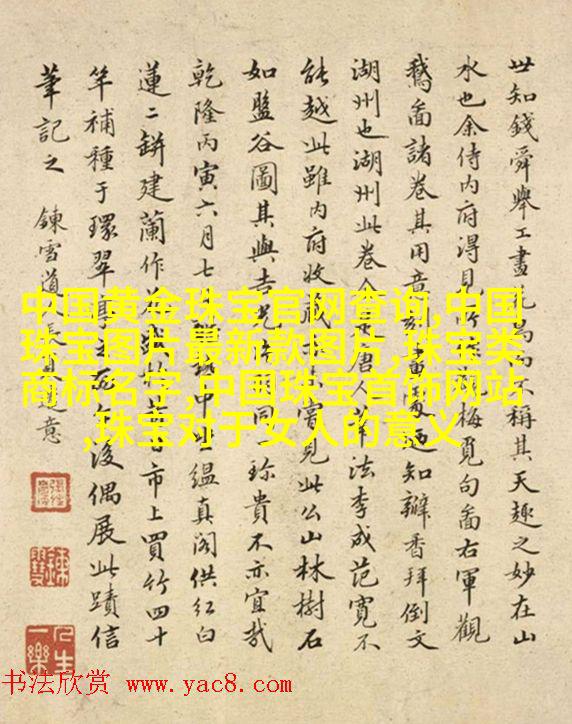 世知錢舜舉工畫花鳥而不稱其天趣之妙在山
水也余侍内府得見梅覓句畵右軍觀
鵝畵諸卷其用意知瓣香拜倒文
湖州也湖州此卷唐人筆法李成范寬不
能越此雖内府收藏嘗見此公山林樹石
如盤谷圖其與吉光同珍貴不亦宜哉
乾隆丙寅六月七緼真閣供紅白
蓮二缾建蘭作市上買竹四十
竿補種于環翠後偶展此蹟信
筆記之 鍊雪道意
人生一樂
中国黄金珠宝官网查询,中国
珠宝图片最新款图片,珠宝类
商标名字,中国珠宝首饰网站
,珠宝对于女人的意义
书法欣赏 www.yac8.com